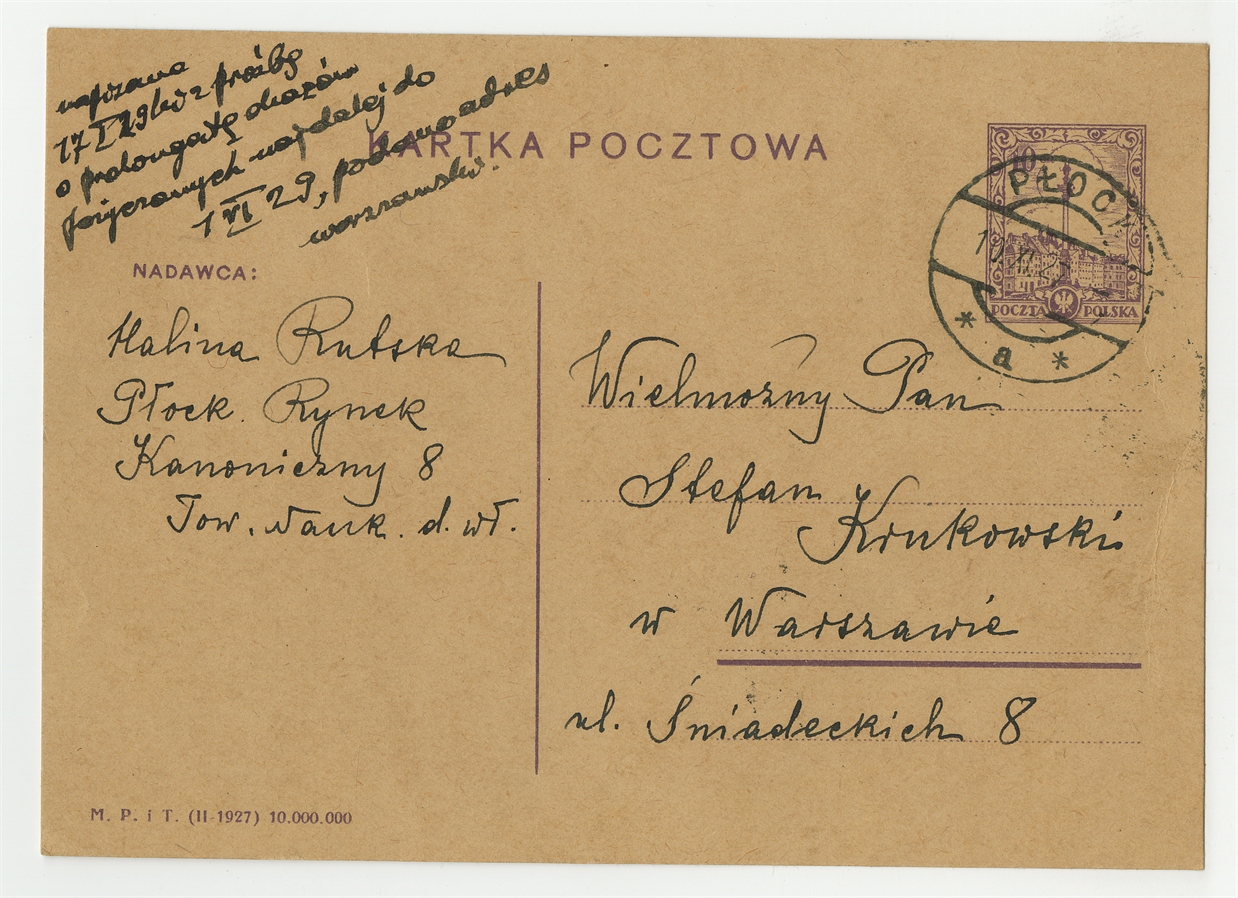 napisana
17 I 29 kw z prośbę
o prolongatę okazów
pożyczonych najdalej do
1 VI 29, podano adres
warszawski.
KARTKA POCZTOWA
10
POCZTA POLSKA
PŁOCK
a
NADAWCA:
Halina Rutska
Płock. Rynek
Kanoniczny 8
Tow. Nauk. d. wł.
Wielmożny Pan
Stefan
Krukowski
w Warszawie
ul. Śniadeckich 8
M. P. i T. (II-1927) 10.000.000